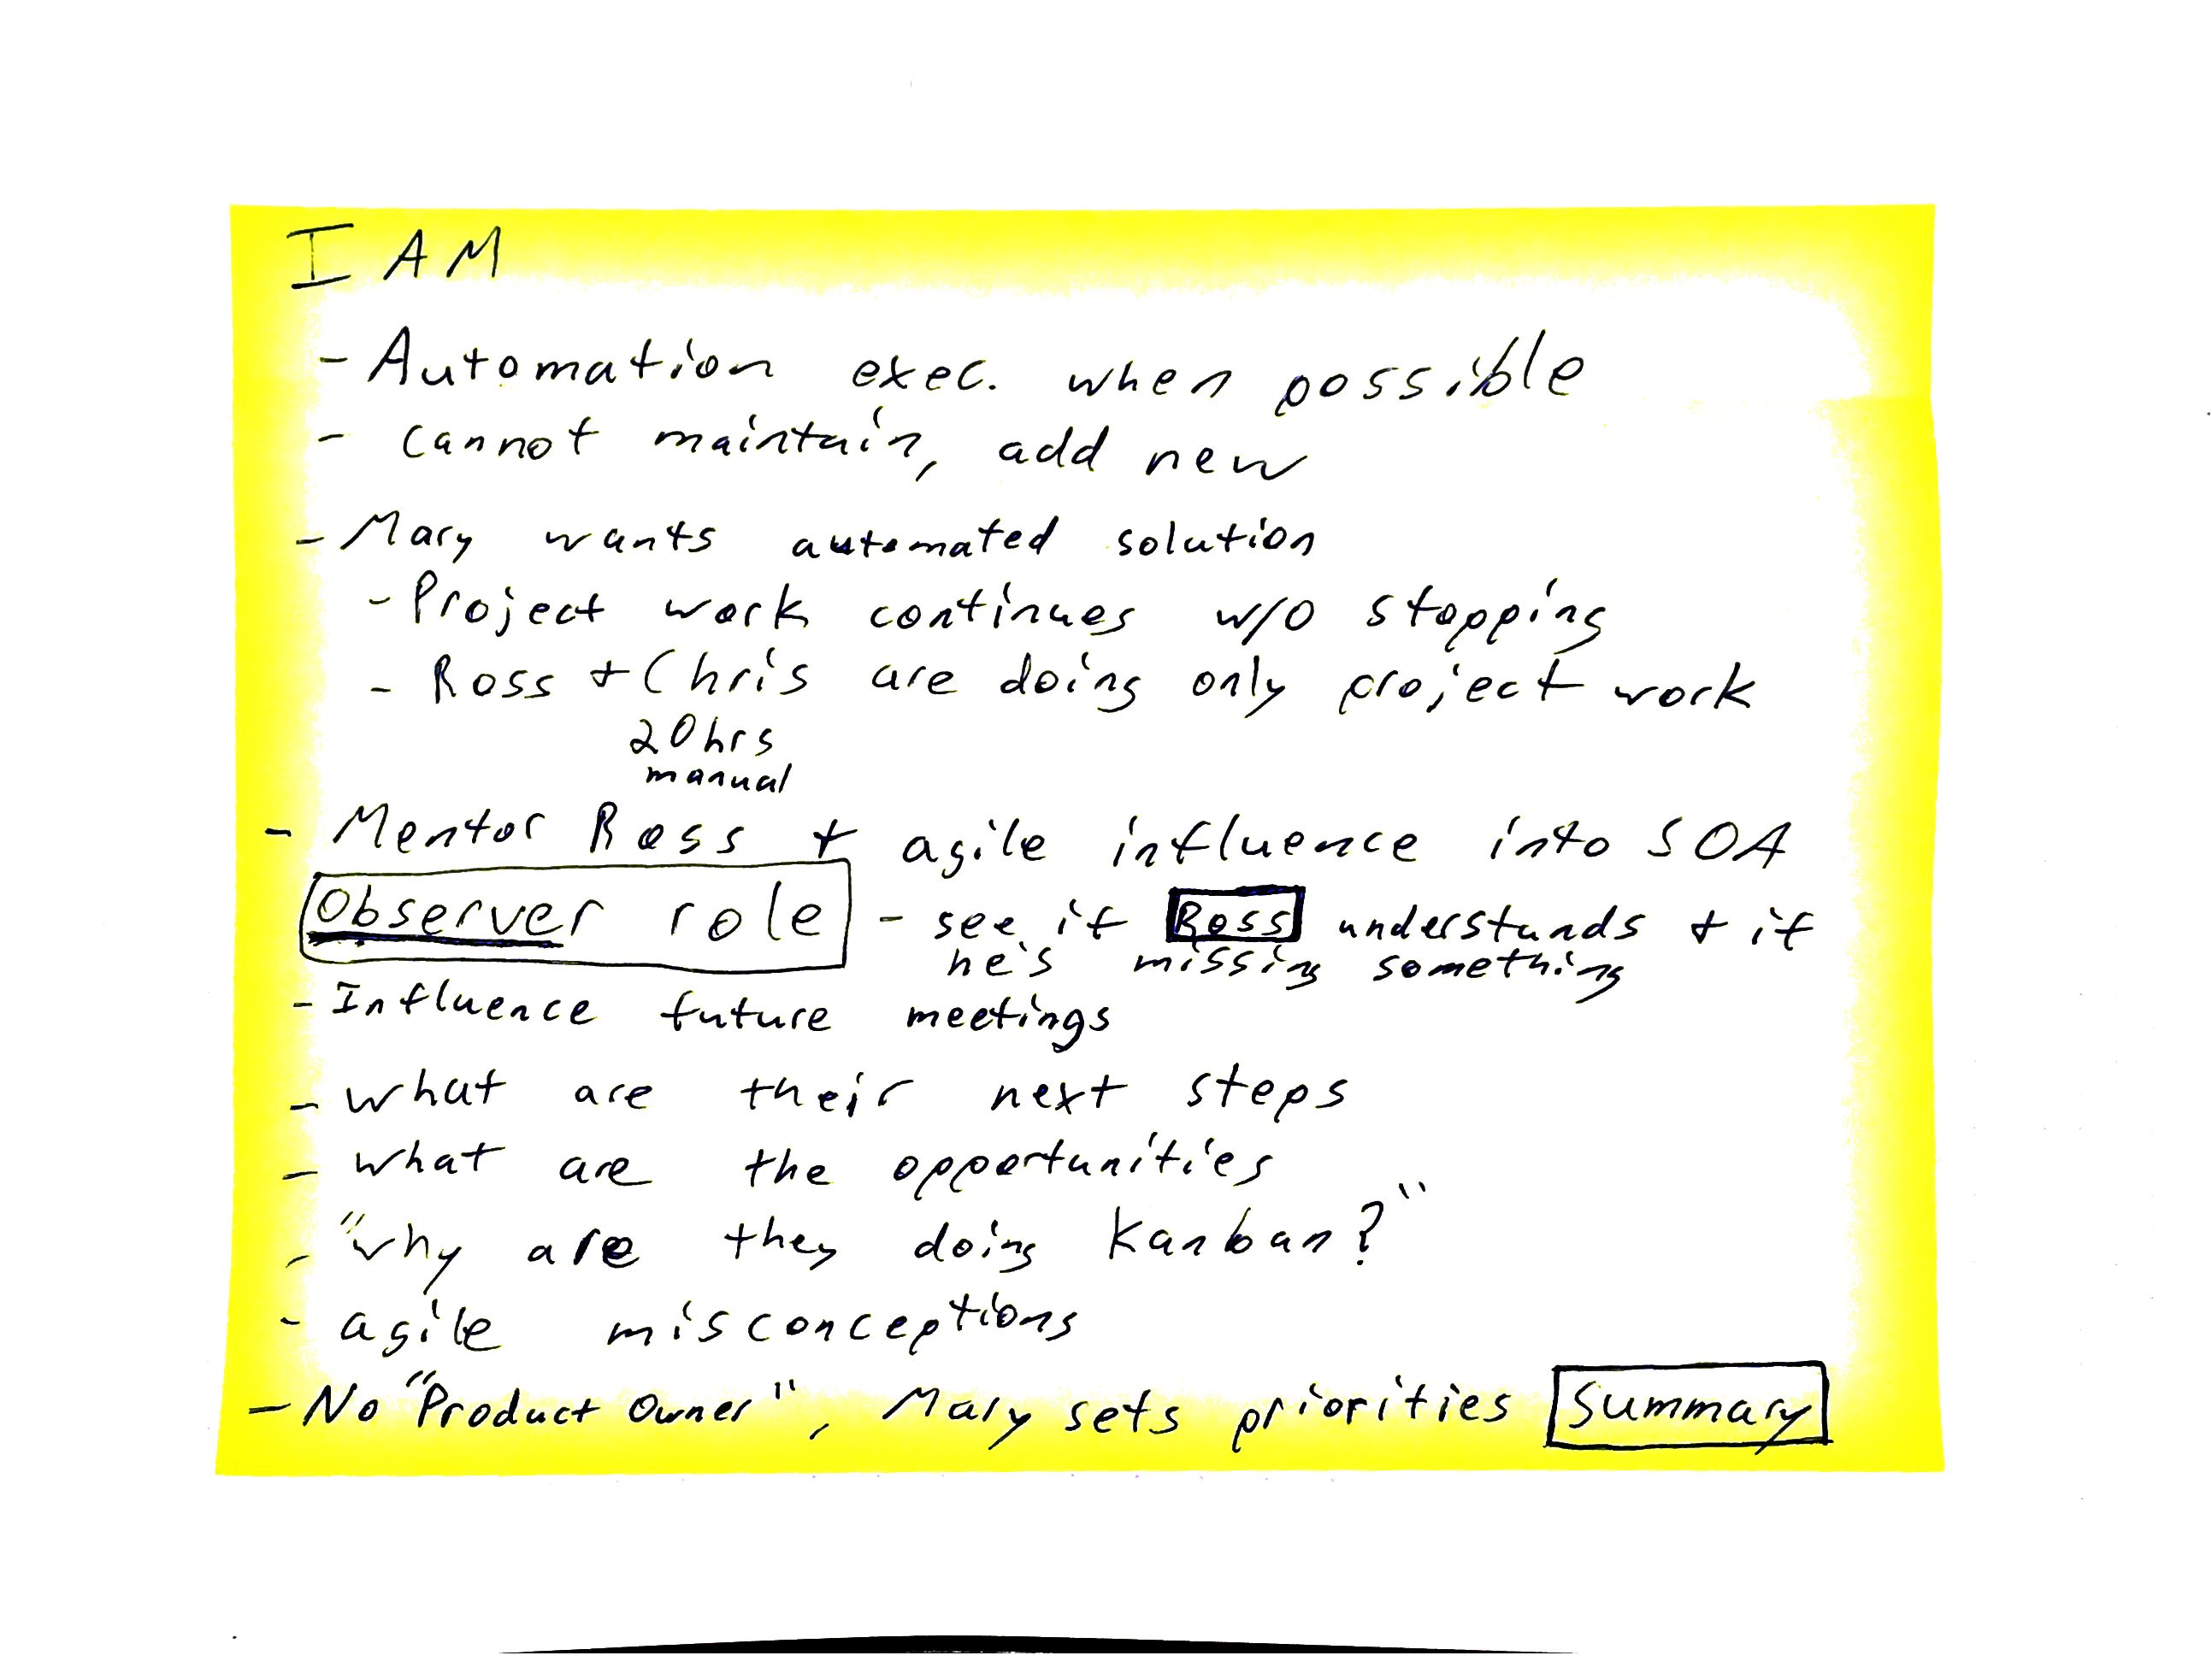 I AM
- Automation exec. when possible
- cannot maintain, add new
- Mary wants automated solution
- Project work continues w/o stopping
- Ross + Chris are doing only project work
20hrs
manual
- Mentor Ross + agile influence into SOA
Observer role - see if Ross understands + if
he's missing something
- Influence future meetings
- what are their next steps
- what are the opportunities
- "why are they doing Kanban?"
- agile misconceptions
- No "Product Owner", Mary sets priorities Summary